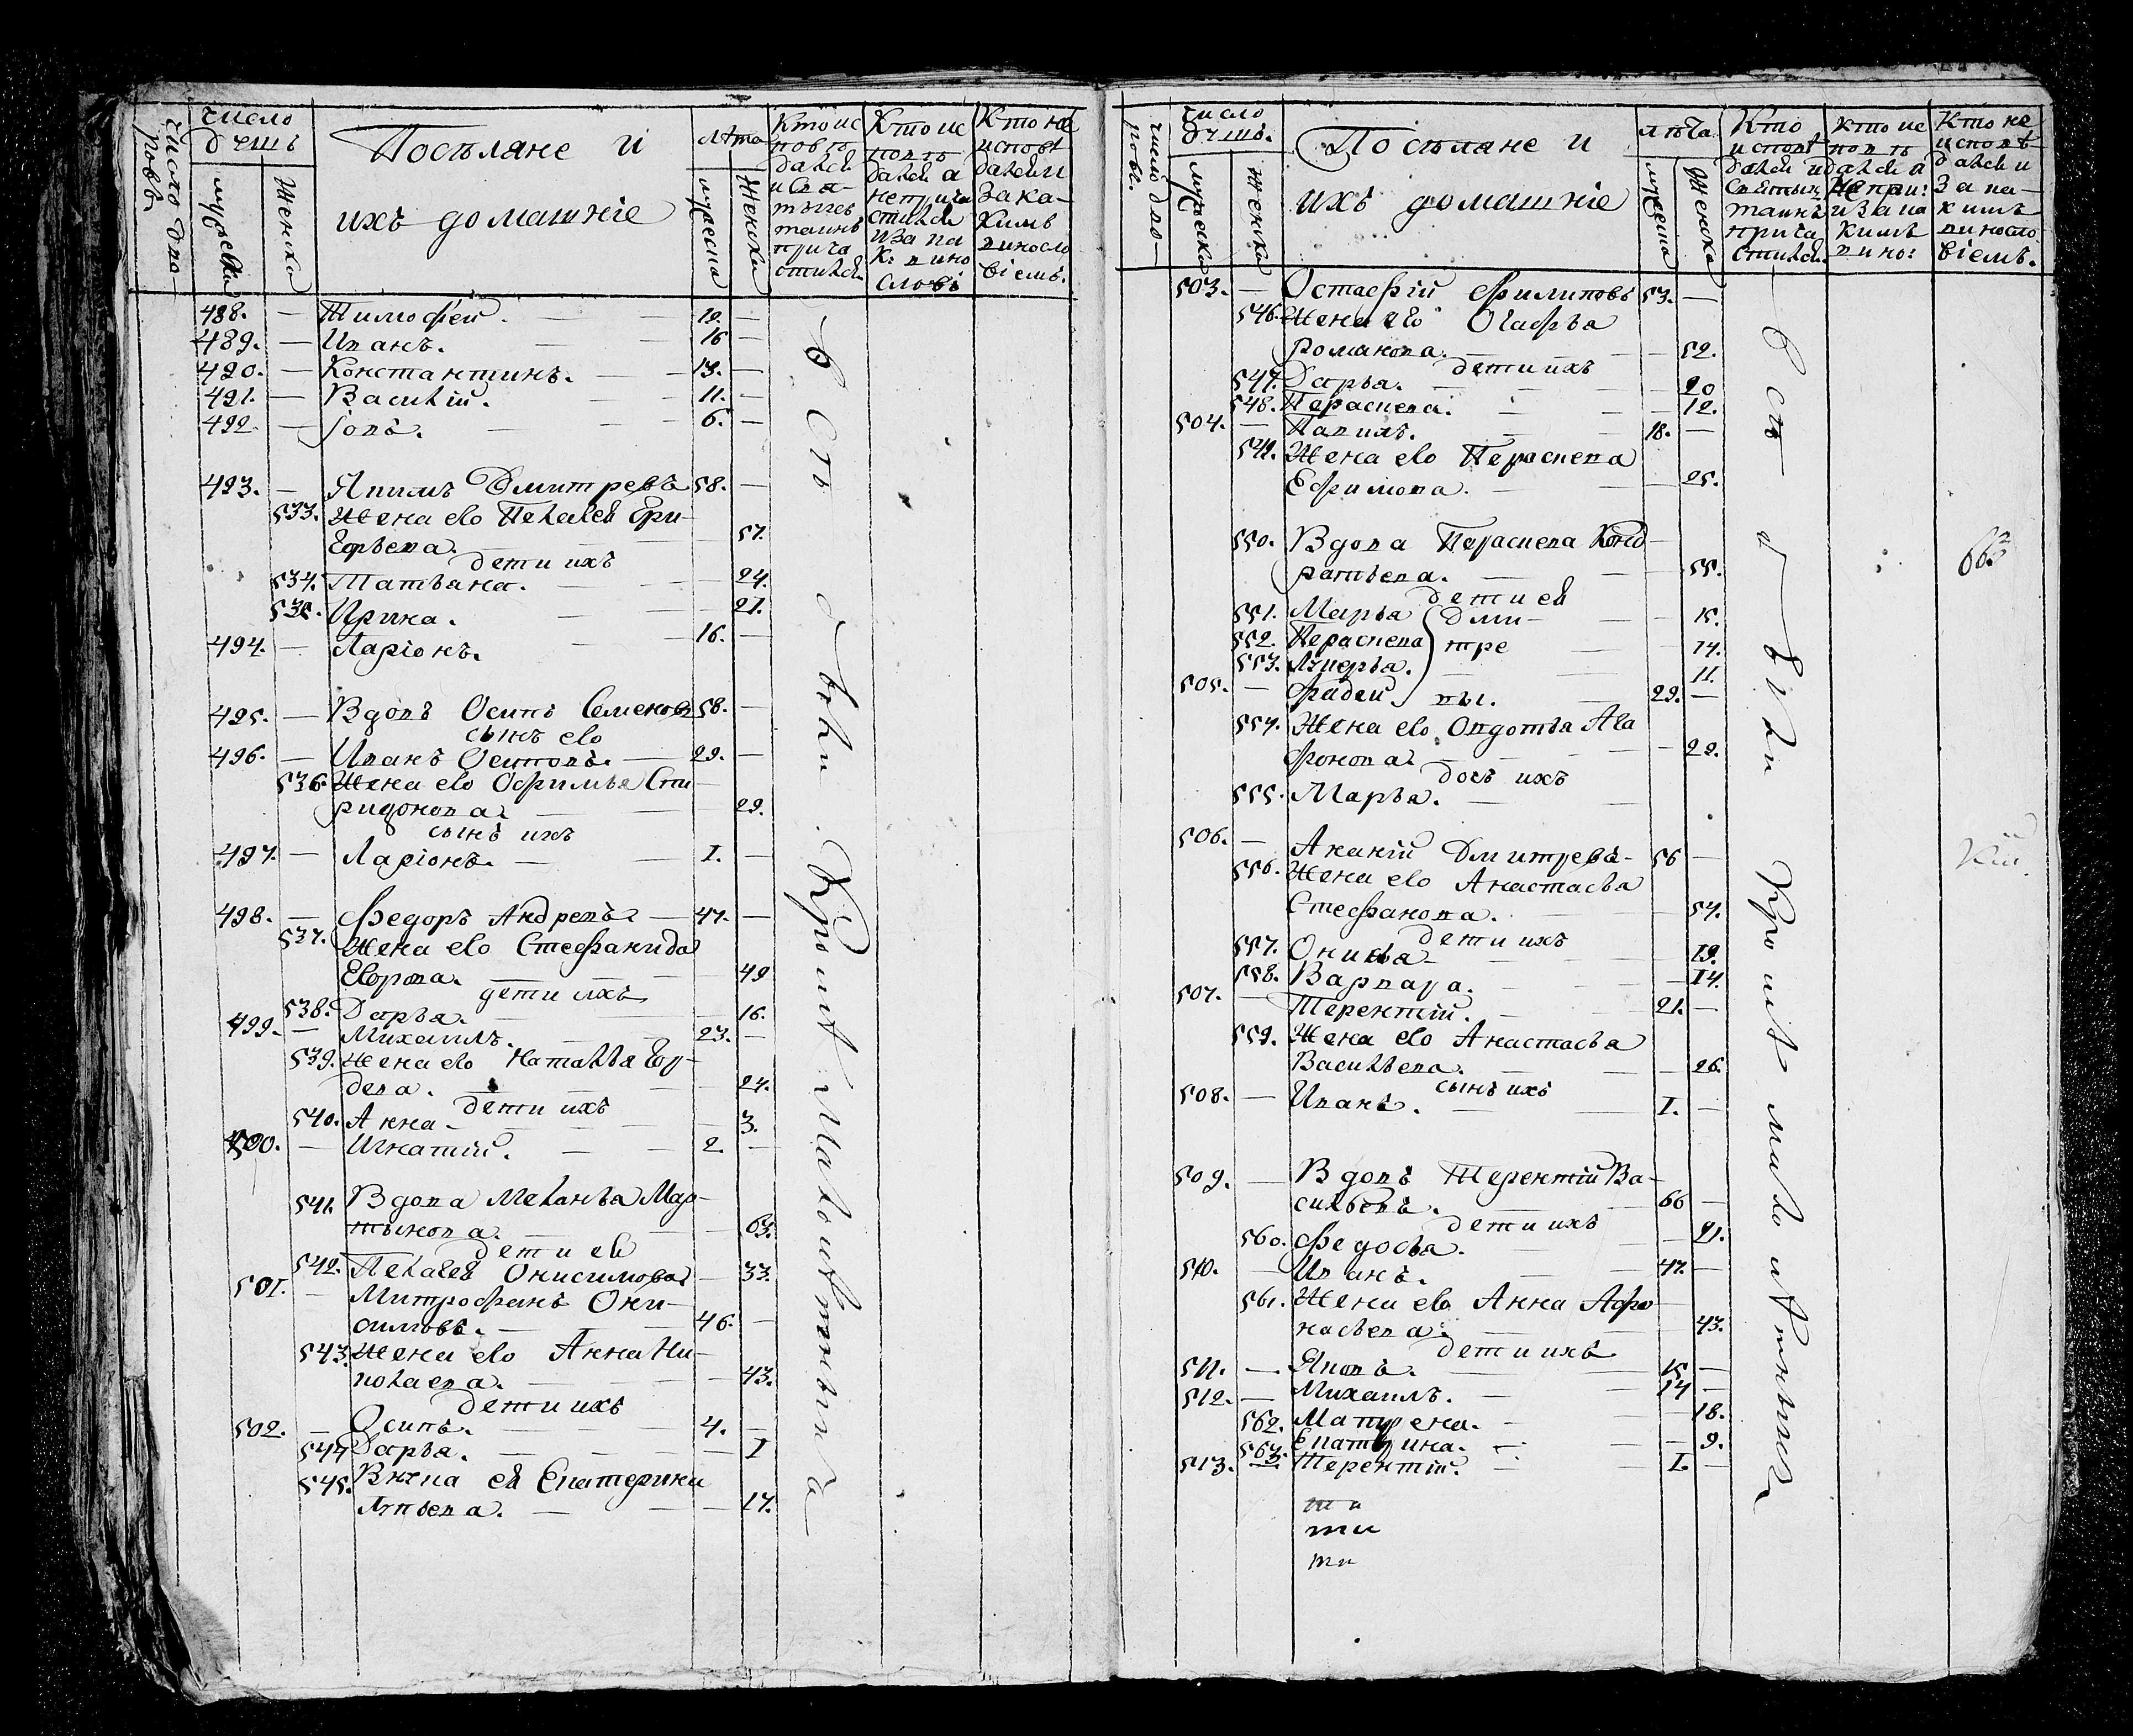 число дво ровъ
число душъ
мужеска
женска
Поселяне и
ихъ домашніе
лѣта
мужеска
женска
Кто ис повѣ дался и свя тыхъ таинъ прича стился
Кто ис повѣ дался а не прича стился и за ка кимъ вино словіе
Кто не исповѣ дался и за ка кимъ винословіемъ.
488. — Тимофей. — 19. —
489. — Иванъ. — 16 —
490. — Константинъ. — 13. —
491. — Василій. — 11. —
492. — Іовъ. — 6. —
493. — Якимъ Дмитревъ 58. —
533. Жена его Пелагея Гри-
горьева. — 57.
дети ихъ
534. Татьяна. — 24.
535. Ирина. — 21.
494. — Ларіонъ. 16. —
495. — Вдовъ Осипъ Семеновъ 58. —
сынъ его
496. — Иванъ Осиповъ. — 29. —
536. Жена его Офимья Спи
ридонова — 29.
сынъ ихъ
497. — Ларіонъ. — 1. —
498. — Федоръ Андреевъ — 47. —
537. Жена его Стефанида
Егорова. — 49
дети ихъ
538. Дарья. — 16.
499. — Михаилъ. — 23. —
539. Жена его Наталья
дева. — 24.
дети ихъ
540. Анна — 3.
500. — Игнатій. — 2. —
541. Вдова Меланья Мар-
тынова. — 63.
дети ей
542. Пелагея Онисимова — 33.
501. — Митрофанъ Они-
симовъ. — 46. —
543. Жена его Анна Ни-
колаева. — 43.
дети ихъ
502. — Осипъ. — 4. —
544. Дарья. — 1
545. Внука ей Екатерина
— 17.
всѣ были кромѣ малолѣтныхъ
число дво ровъ.
число душъ.
мужеска
женска
Поселяне и
ихъ домашніе
лѣта
мужеска
женска
Кто исповѣ дался и святыхъ таинъ прича стился.
Кто ис повѣ дался а не при: и за ка кимъ вино:
Кто не исповѣ дался и за ка кимъ виносло віемъ.
503. — Остафій Филиповъ 53. —
546. Жена его Агафья
Романова. — 52.
дети ихъ
547. Дарья. — 20
548. Параскева. — 12.
504. — Вавилъ. 18. —
549. Жена его Параскева
Ефимова. — 25.
550. Вдова Параскева Конд-
ратьева. — 55.
дети ей
551. Марья Дми- — 15.
552. Параскева тре — 14.
553. Лукерья. — 11.
505. — Фадей вы. 29. —
554. Жена его Авдотья Ага
фонова — 29.
дочь ихъ
555. Марья. —
506. — Ананій Дмитревъ — 56 —
556. Жена его Анастасья
Стефанова. — 54.
дети ихъ
557. — 19.
558. Варвара. — 14.
507. — Терентій. — 21. —
559. Жена его Анастасья
Васильева. — 26.
сынъ ихъ
508. — Иванъ. — 1. —
509. — Вдовъ Терентій Ва-
сильевъ. — 66 —
дети ихъ
560. Федосья. — 21.
510. — Иванъ. — 47. —
561. Жена его Анна Афо
насьева. — 43.
дети ихъ
511. — Яковъ. — 15 —
512. — Михаилъ. — 14 —
562. Матрена. — 18.
563. Екатерина. — 9.
513. — Терентій. — 1. —
ти
ти
ти
всѣ были кромѣ малолѣтныхъ